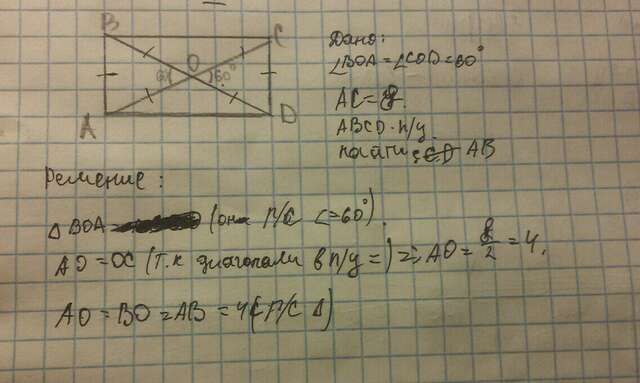 B C
O
60° 60°
A D
Дано:
∠BOA = ∠COD = 60°
AC = 8.
ABCD - п/у.
Найти: AB
Решение:
△ BOA (он р/с ∠=60°).
AO = OC (т.к диагонали в п/у =) => AO = 8/2 = 4.
AO = BO = AB = 4 (р/с △)